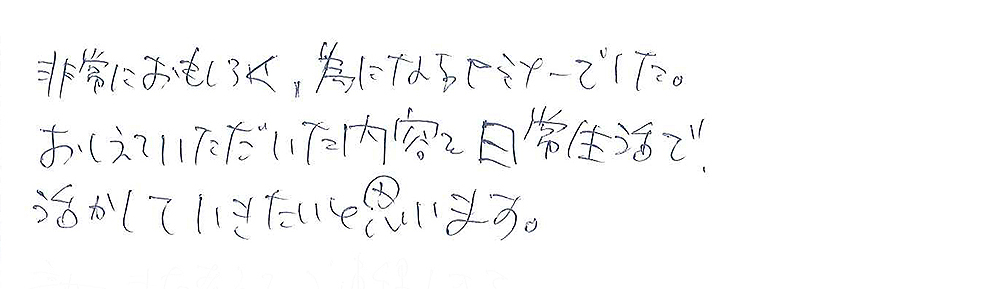 非常におもしろく、為になるセミナーでした。
おしえていただいた内容を日常生活で、
活かしていきたいと思います。